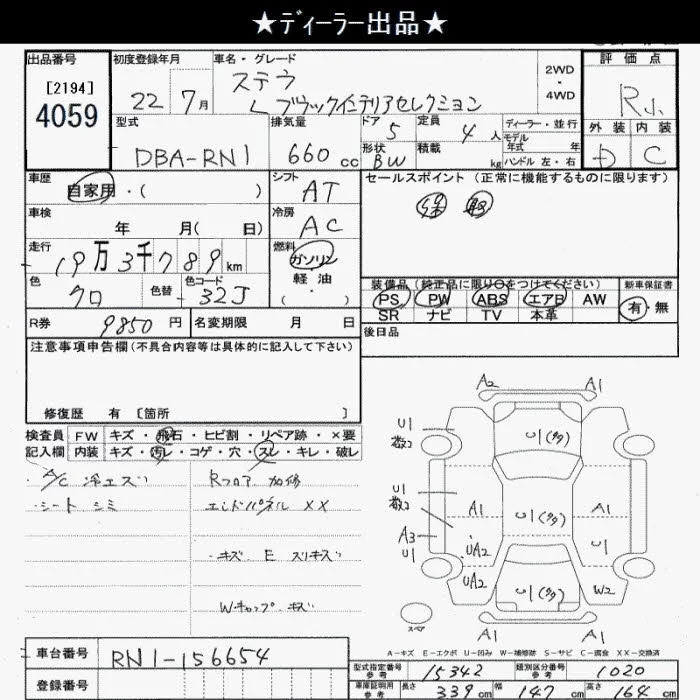 ★ディーラー出品★
出品番号
[2194]
4059
初度登録年月
22年7月
車名・グレード
ステラ
L ブラックインテリアセレクション
2WD
・
4WD
評価点
R小
外装 内装
D C
型式
DBA-RN1
排気量
660cc
ドア 5
形状 BW
定員 4人
積載 kg
ディーラー・並行
モデル年式 年
ハンドル 左・右
車歴
自家用・( )
シフト
AT
セールスポイント (正常に機能するものに限ります)
保 取
車検
年 月( 日)
冷房
AC
走行
19万3千789km
燃料
ガソリン
軽油
( ・ )
色
クロ
色替
色コード
32J
装備品 (純正品に限り○をつけてください)
PS PW ABS エアB AW
SR ナビ TV 本革
新車保証書
有・無
R券 9850円
名変期限 月 日
後日品
注意事項申告欄(不具合内容等は具体的に記入して下さい)
修復歴 有 [箇所 ]
検査員記入欄
FW キズ・飛石・ヒビ割・リペア跡・×要
内装 キズ・汚レ・コゲ・穴・スレ・キレ・破レ
・A/C 冷エズ
・シート シミ
Rフロア 加修
エンドパネル XX
・キズ E スリキズ
Wキャップ キズ
A2 A1
U1
数コ
U1(多)
U1
数コ
A1 U1(多) A1
A3
U1
UA2 U1
UA2 U1(多) W2
スペア
A1 A1
A-キズ E-エクボ U-凹み W-補修跡 S-サビ C-腐食 XX-交換済
車台番号
RN1-156654
登録番号
型式指定番号 参考
15342
類別区分番号 参考
1020
車庫証明用 参考
長さ 339cm
幅 147cm
高さ 164cm